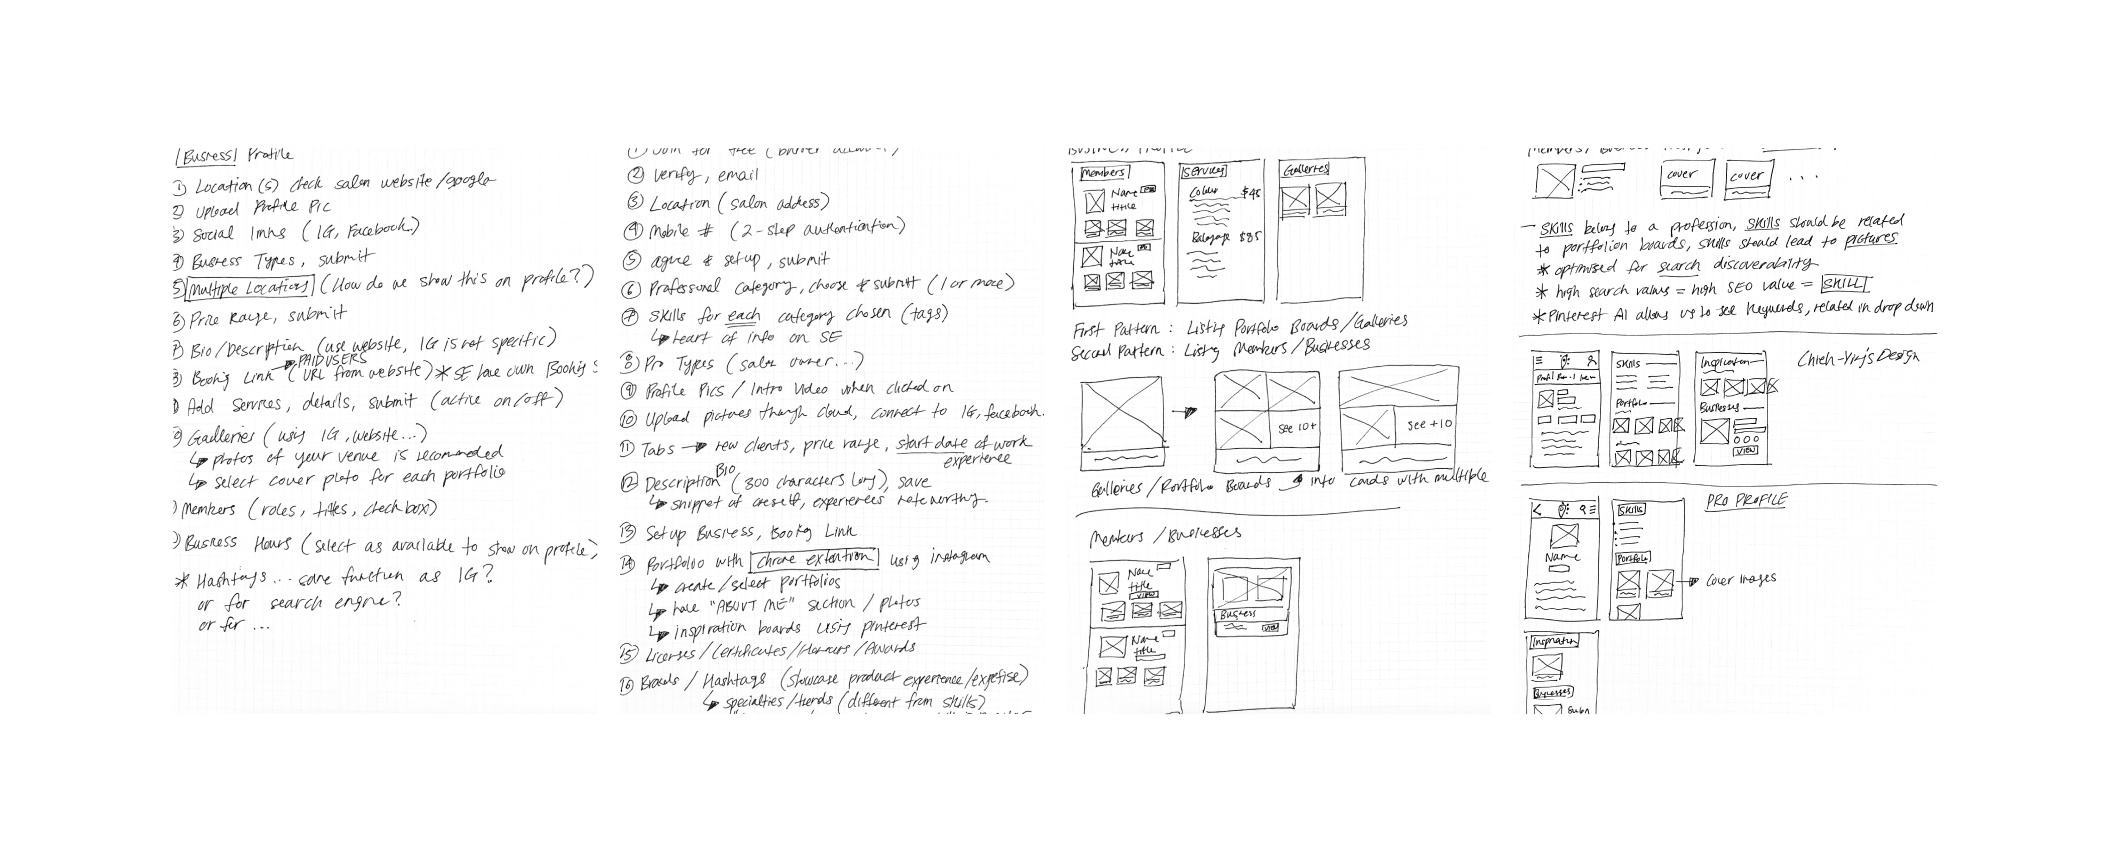 Business Profile
Location(s) check salon website/google
2) Upload Profile Pic
3) Social links (IG, Facebook)
Business Types, submit
5) Multiple Locations (How do we show this on profile?)
Price Range, submit
Bio/Description (use website, IG is not specific)
PAID USERS
Booking Link (URL from website) * SE have own Booking
Add Services, details, submit (active on/off)
Galleries (using IG, website...)
↳ photos of your venue is recommended
↳ select cover photo for each portfolio
) Members (roles, titles, checkbox)
) Business Hours (select as available to show on profile)
* Hashtags... same function as IG?
or for search engine?
or for ...
① Join for free
② Verify, email
③ Location (salon address)
④ Mobile # (2-step authentication)
⑤ agree & setup, submit
⑥ Professional category, choose & submit (1 or more)
⑦ Skills for each category chosen (tags)
↳ Heart of info on SE
⑧ Pro Types (salon owner...)
⑨ Profile Pics / Intro Video when clicked on
⑩ Upload pictures through cloud, connect to IG, facebook.
⑪ Tabs → new clients, price range, start date of work
experience
BIO
⑫ Description (300 characters long), save
↳ snippet of oneself, experiences noteworthy.
⑬ Set up Business, Booking Link
⑭ Portfolio with chrome extention using instagram
↳ create/select portfolios
↳ have "ABOUT ME" section / photos
↳ inspiration boards using pinterest
⑮ Licenses/Certificates/Honours/Awards
⑯ Brands / Hashtags (showcase product experience/expertise)
↳ specialties/trends (different from skills)
Business Profile
Members
Name
title
Name
title
Services
Colour $45
Balayage $85
Galleries
First Pattern: Listing Portfolio Boards/Galleries
Second Pattern: Listing Members/Businesses
see 10+
see +10
Galleries/Portfolio Boards
info cards with multiple
Members/Businesses
Name
title
VIEW
Name
title
Business
VIEW
Members/
cover
cover
...
— Skills belong to a profession, skills should be related
to portfolion boards, skills should lead to pictures
* optimised for search discoverability
* high search values = high SEO value = SKILL
* Pinterest AI allows us to see keywords, related in drop down
Skills
Portfolio
Inspiration
Businesses
VIEW
Chieh-Ying's Design
PRO PROFILE
Name
Skills
Portfolio
→ Cover images
Inspiration
Businesses